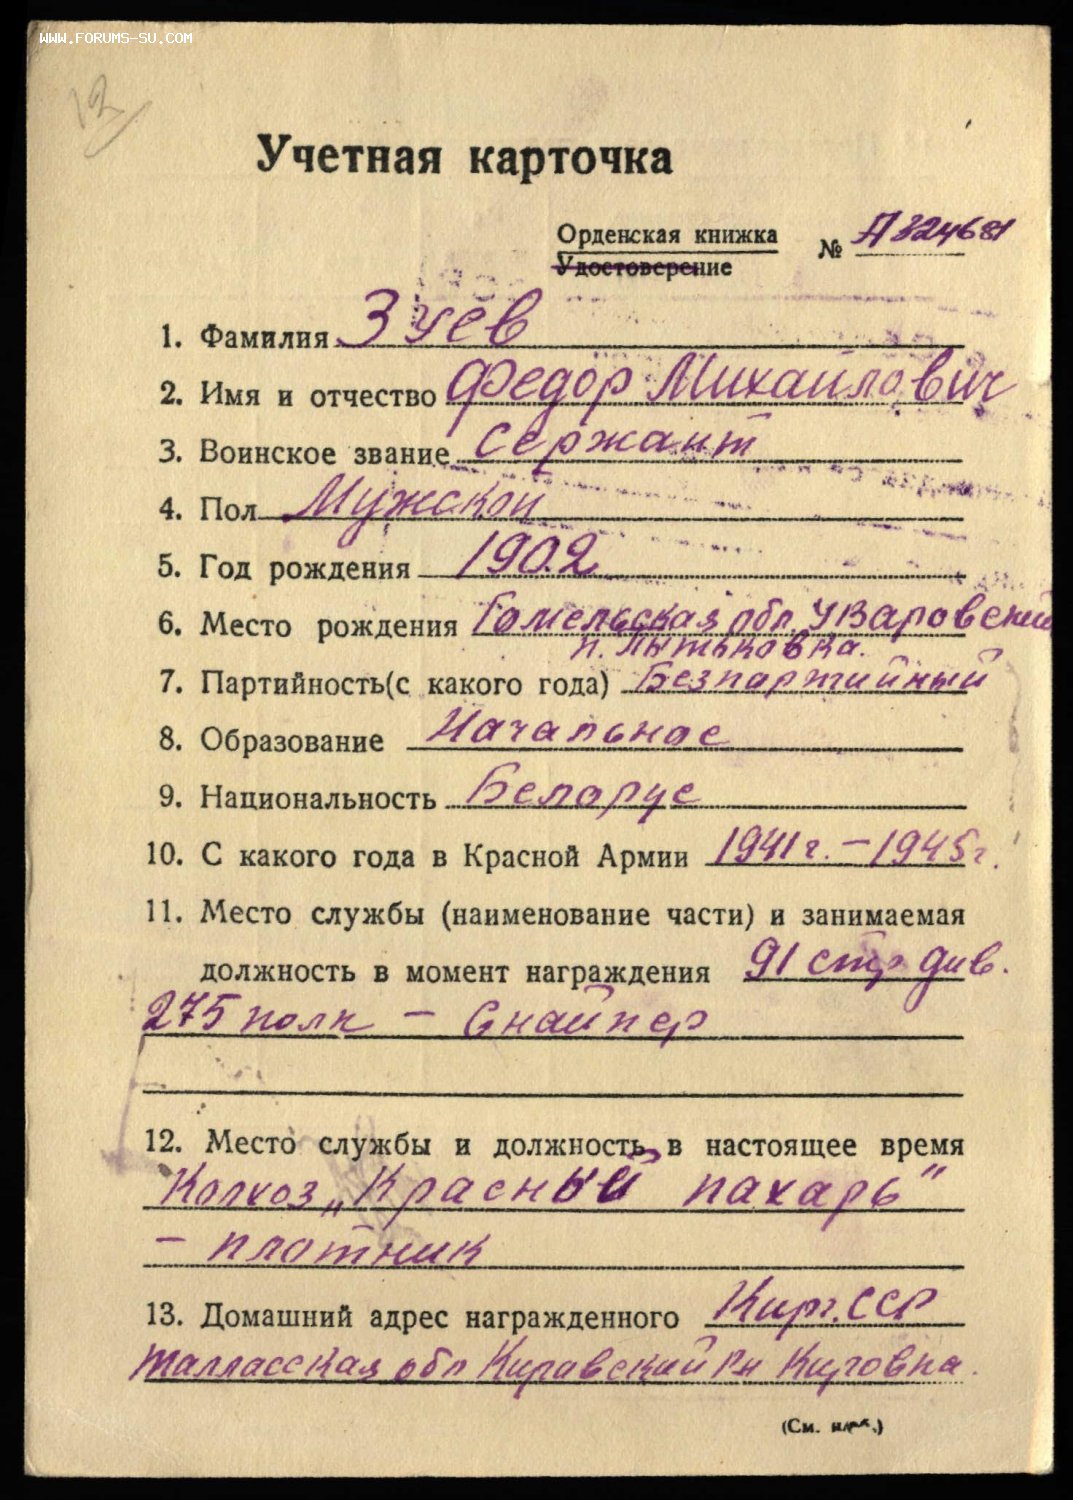 WWW.FORUMS-SU.COM
12
Учетная карточка
Орденская книжка № А 324681
Удостоверение
1. Фамилия Зуев
2. Имя и отчество Федор Михайлович
3. Воинское звание сержант
4. Пол Мужской
5. Год рождения 1902
6. Место рождения Гомельская обл. Уваровский
п.
7. Партийность(с какого года) Безпартийный
8. Образование Начальное
9. Национальность Беларус
10. С какого года в Красной Армии 1941 г. – 1945 г.
11. Место службы (наименование части) и занимаемая
должность в момент награждения 91 стр див.
275 полк – Снайпер
12. Место службы и должность в настоящее время
Колхоз „Красный пахарь"
– плотник
13. Домашний адрес награжденного Кирг. ССР
Талласская обл Кировский Рн
(См.